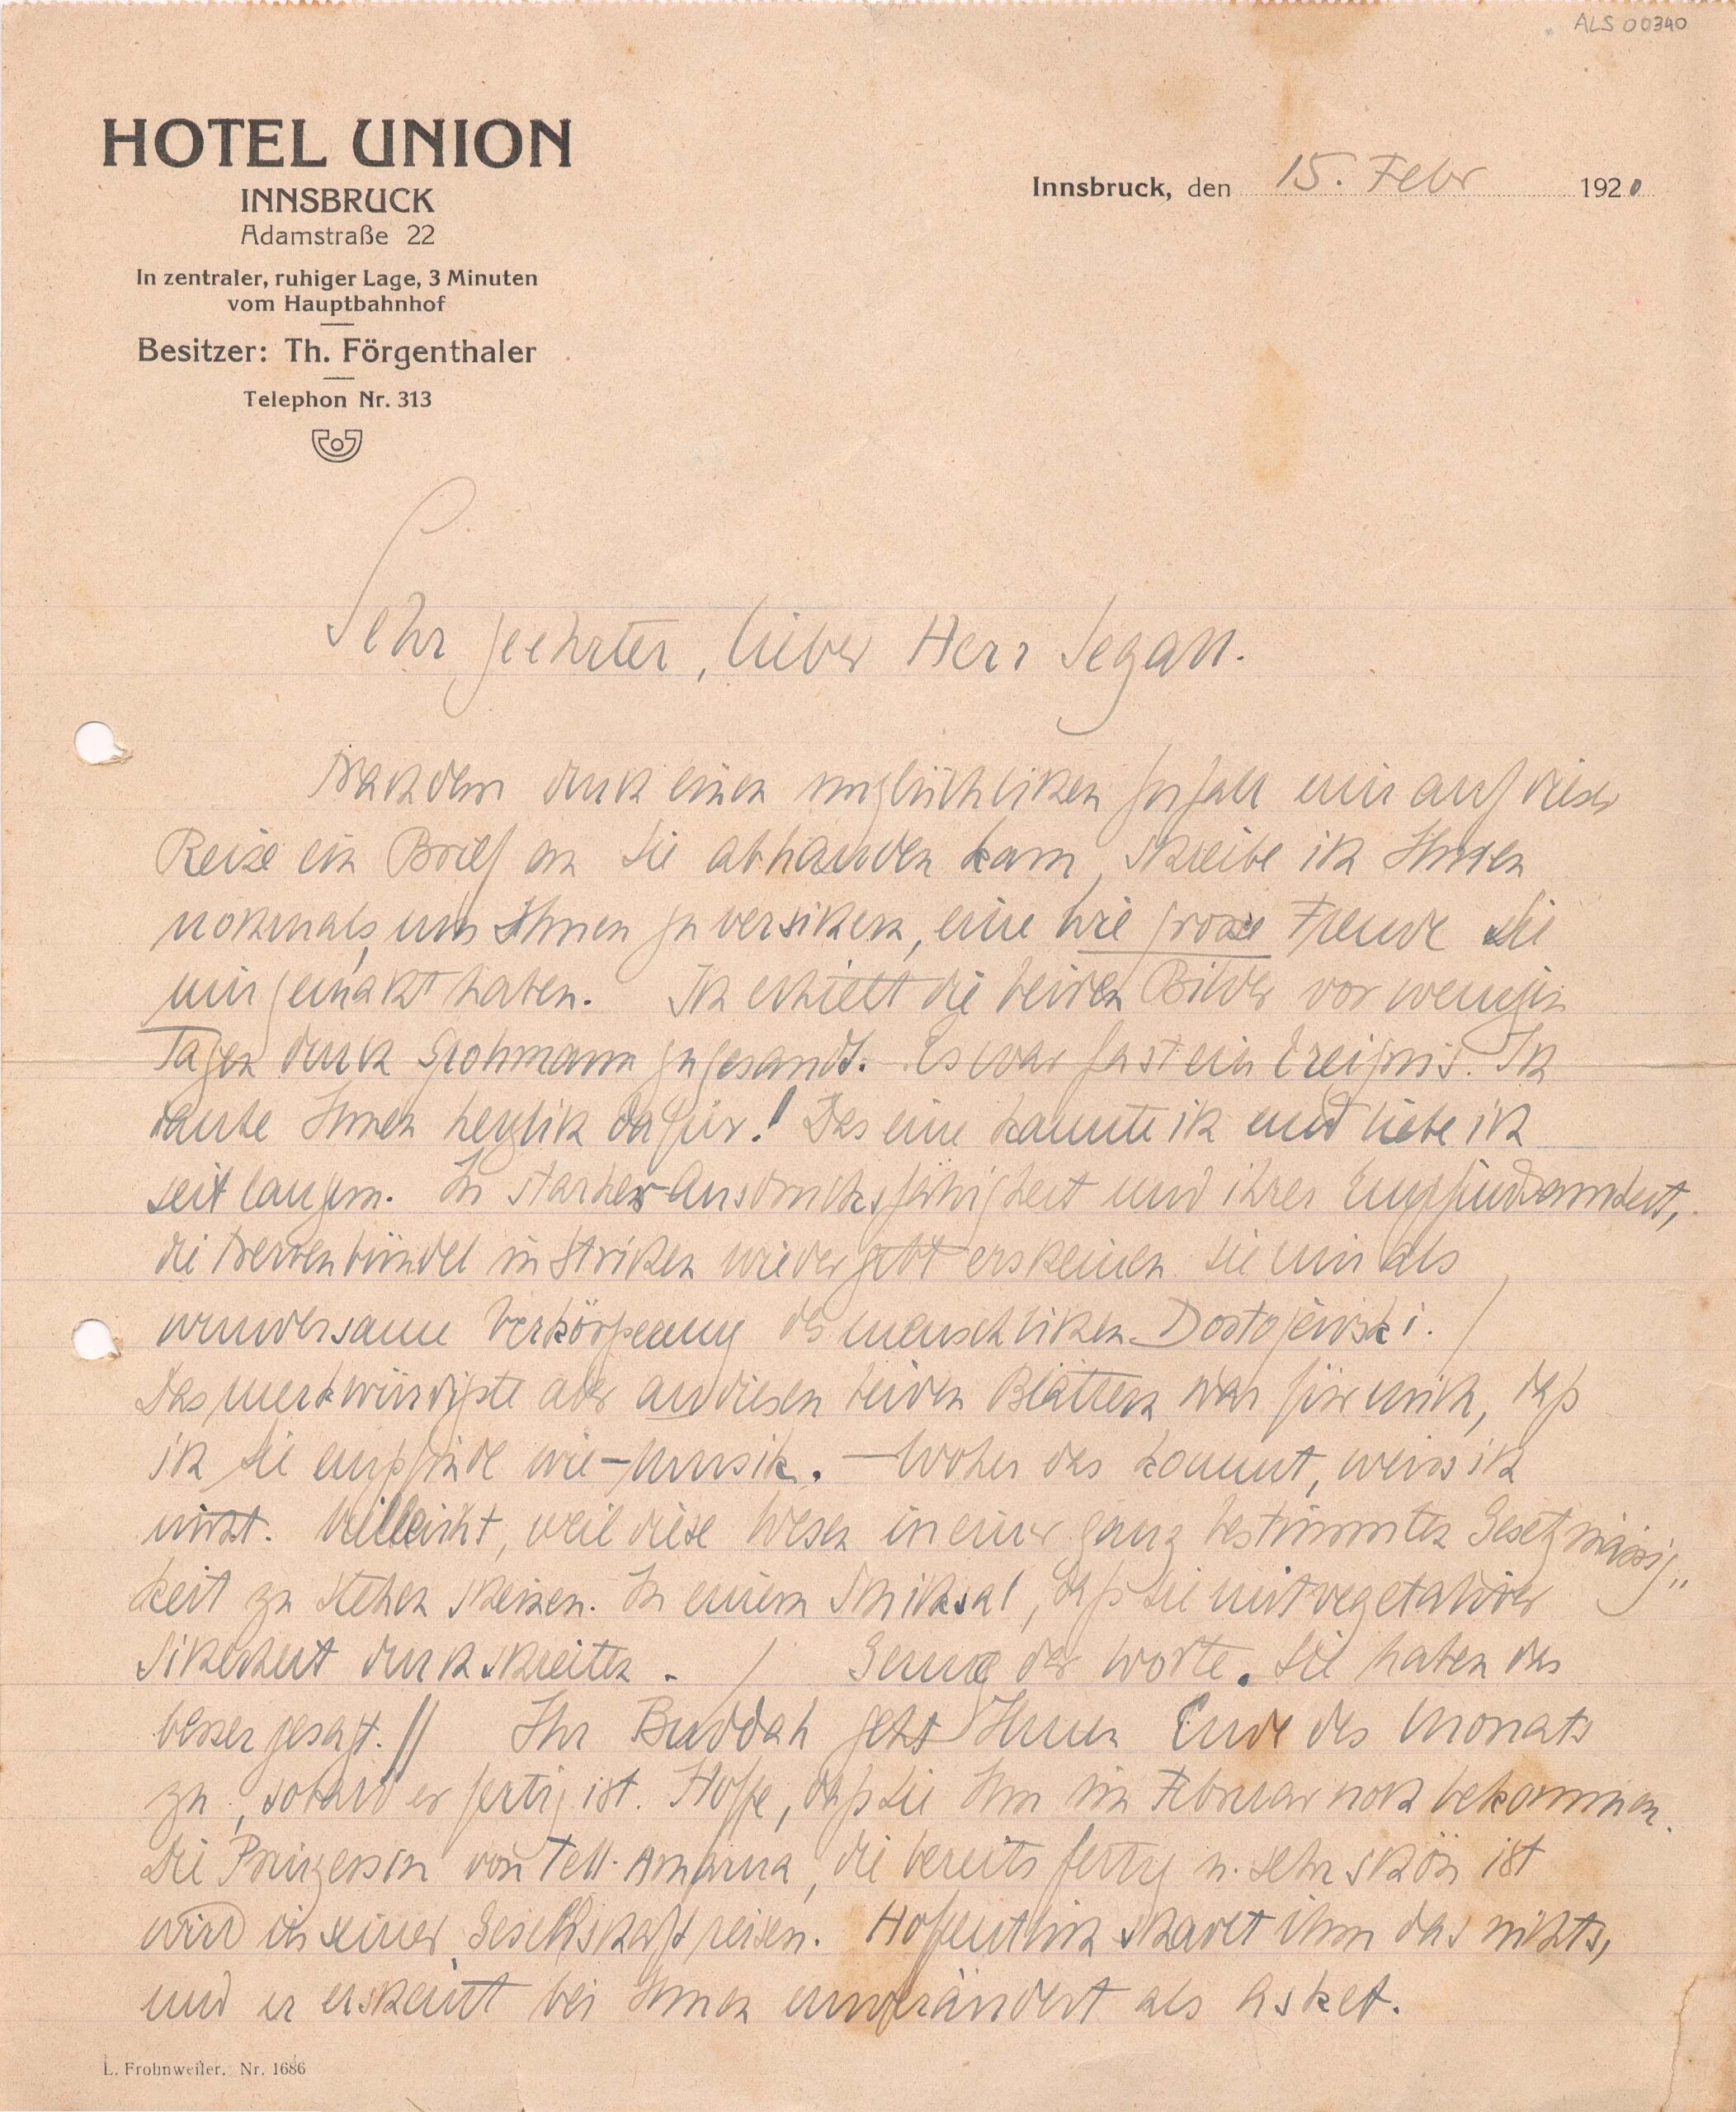 ALS 00340
HOTEL UNION
INNSBRUCK
Adamstraße 22
In zentraler, ruhiger Lage, 3 Minuten
vom Hauptbahnhof
Besitzer: Th. Förgenthaler
Telephon Nr. 313
Innsbruck, den 15. Febr 1920
Sehr geehrter, lieber Herr Segall.
Nachdem durch einen unglücklichen Zufall mir auf dieser
Reise ein Brief an Sie abhanden kam, schreibe ich Ihnen
nochmals, um Ihnen zu versichern, eine wie grosse Freude Sie
mir gemacht haben. Ich erhielt die beiden Bilder vor wenigen
Tagen durch Grohmann zugesandt. Es war fast ein Ereignis. Ich
danke Ihnen herzlich dafür! Das eine kannte ich und liebe ich
seit langem. In starker Ausdrucksfähigkeit und ihrer Empfindsamkeit,
die Nervenbündel in Strichen wiedergibt erscheinen Sie mir als
wundersame Verkörperung des menschlichen Dostojewski. /
Das merkwürdigste aber an diesen beiden Blättern war für mich, daß
ich sie empfinde wie – Musik. – Woher das kommt, weiss ich
nicht. Villeicht, weil diese Wesen in einer ganz bestimmten Gesetzmässig„
keit zu stehen scheinen. In einem Schicksal, daß sie mit vegetativer
Sicherheit durchschreiten. / Genug der Worte. Sie haben das
besser gesagt. // Ihr Buddah geht Ihnen Ende des Monats
zu, sobald er fertig ist. Hoffe, daß Sie ihn im Februar noch bekommen.
Die Prinzessin von Tell-Amarna, die bereits fertig u. sehr schön ist
wird in seiner Gesellschaft reisen. Hoffentlich schadet ihm das nichts,
und er erscheint bei Ihnen unverändert als Asket.
L. Frohnweiler. Nr. 1686